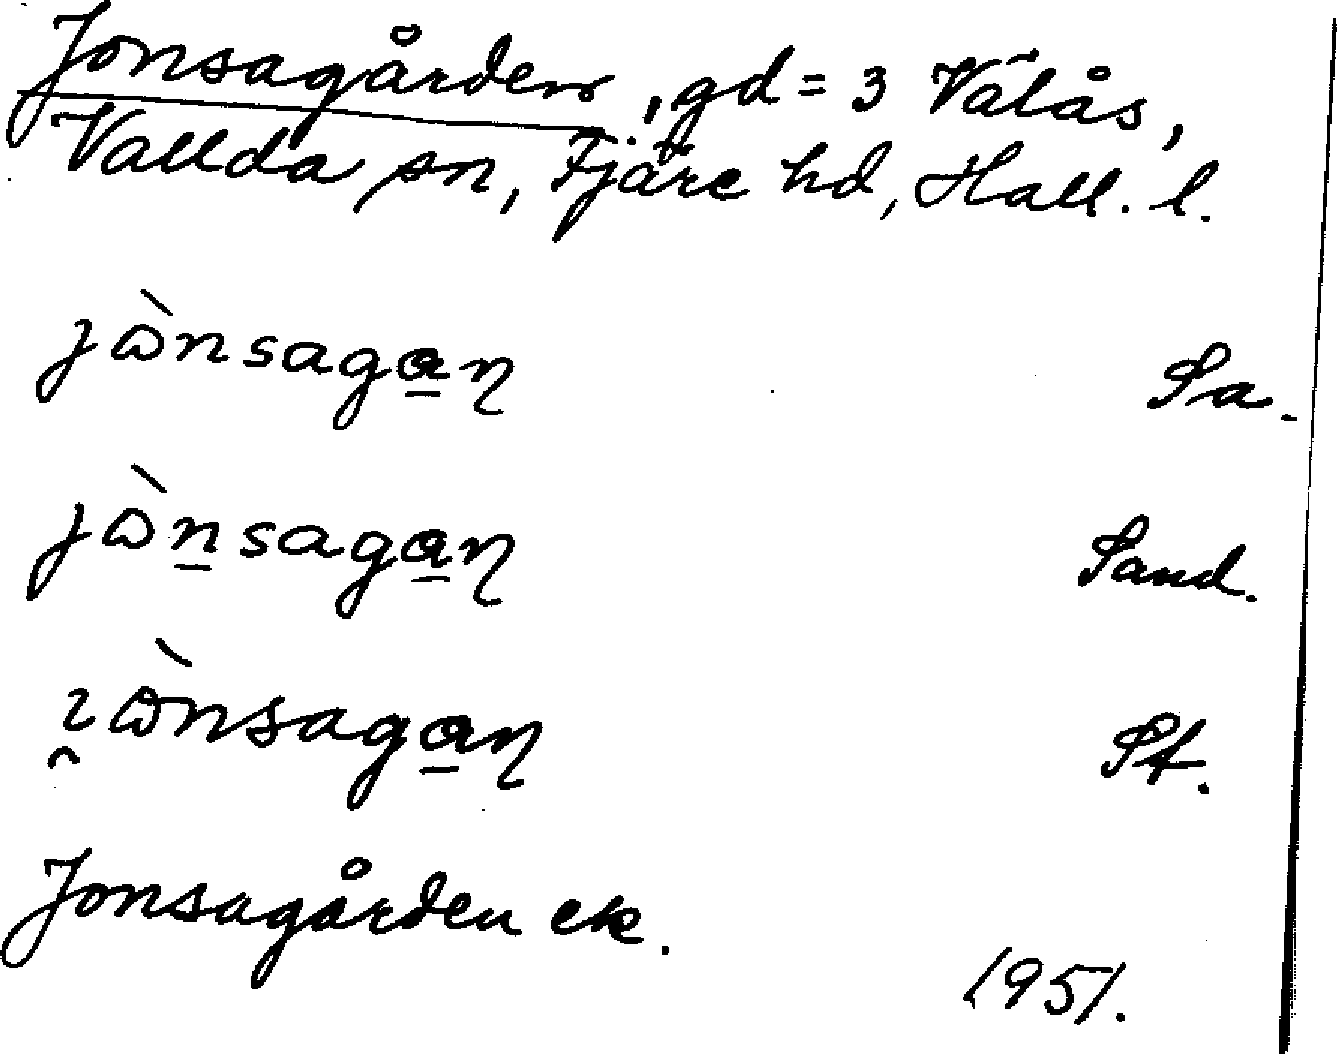 Jonsagården, gd = 3 Välås,
Vallda sn, Fjäre hd, Hall. l.
jɷ̀nsaga̱ɳ Sa.
jɷ̀ṉsaga̱ɳ Sand.
ɿ̯ɷ̀nsaga̱ɳ St.
Jonsagården ek.
1951.